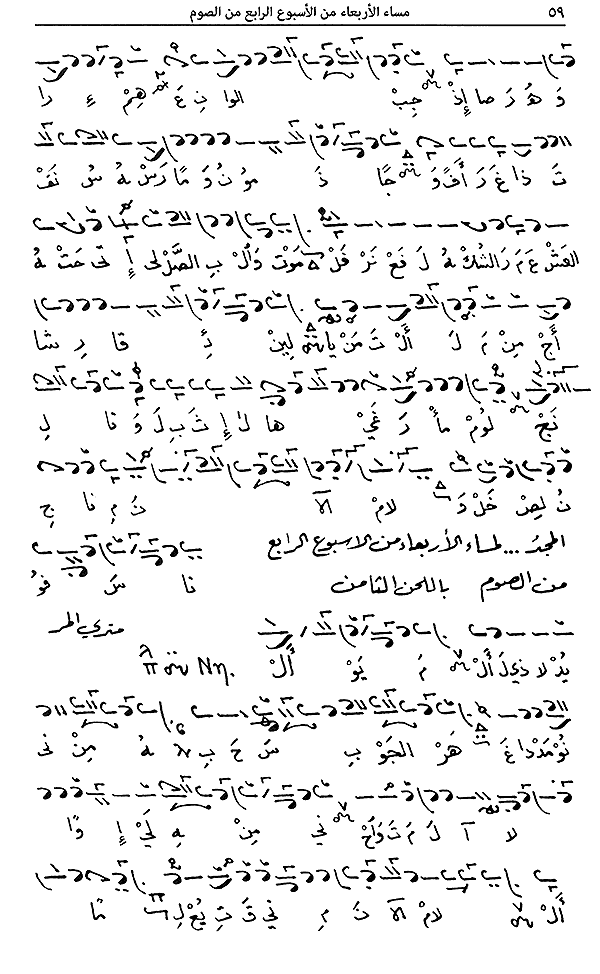 ٥٩ مساء الأربعاء من الأسبوع الرابع من الصوم
وَ هُ رَ صا إِذْ جِبْ الوا نِ عَ هِمْ ءِ را
تَ ذا غَ رَ أَفْ وَ جًا ذَ مو نُ وَ مًا رَسْ هُ سُ نَفْ
العَشْ عَ مَ رَ الشُكْ هُ لَ فَعْ نَرْ فَلْ مَوْت بِ الصَّلْ إِ تى حَتْ هُ
أَجْ مِنْ مَ لَ أَلْ تَ مَنْ يا لِينْ ئِ قا رِ شا
نَجْ لُومْ مأْ رَ غَيْ ها لِ إِ ثَ بِ لَ وَ قا لِ
نُ لِصْ خَلْ دَ لامْ الآ تَ مِ نا جِ
المجدُ ... لمساء الأربعاء من الاسبوع الرابع
من الصوم باللحن الثامن نا سَ فو
متري المر
يُدْ لا ذي لَ أَلْ مَ يَوْ أَلْ Νη
نُو مَدْ دا غَ هَرْ الجَوْ بِ سَ حَ بِ هُ مِنْ ني
لا آ لَ مَ تَ وَاحْ ني مِنْ هِ لَيْ إِ وًا
أَلْ لامْ الآ تَ مِ ني قَ تِ يُعْ لِ مًا